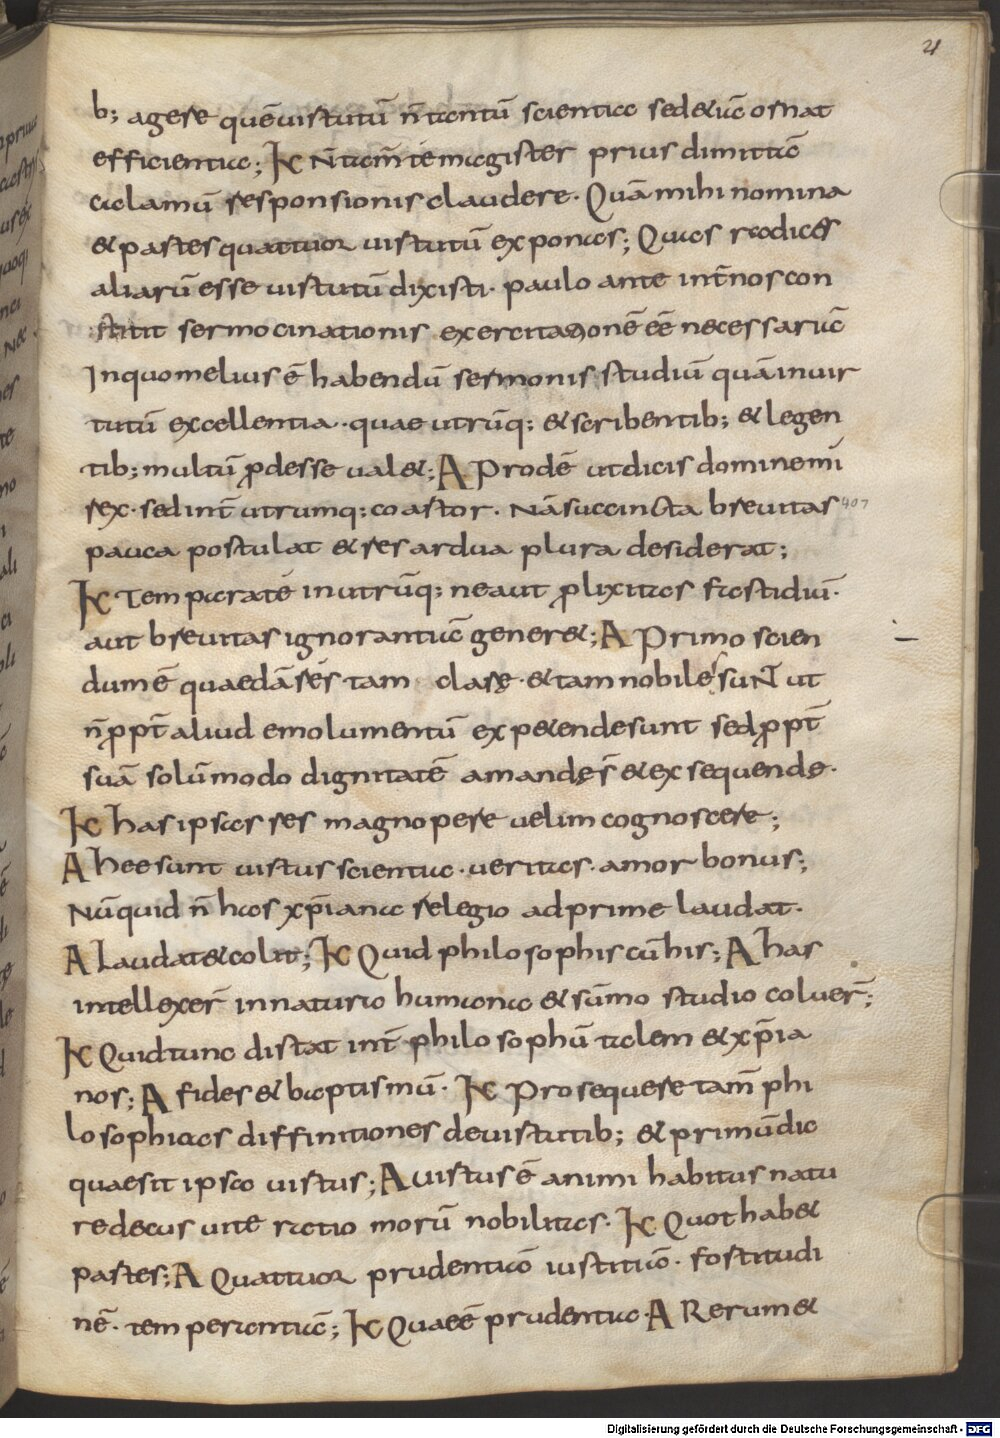 21
b; agere quē uirtutū n̄ tantū scientia sed &uā ornat
efficientia; K N̄ tam̄ te magister prius dimittā
aclamū responsionis claudere. Quā mihi nomina
& partes quattuor uirtutū exponas; Quas radices
aliarū esse uirtutū dixisti. paulo ante int̄ nos con
stitit sermocinationis exercitationē eē necessariā
In quo melius ē habendū sermonis studiū quā in uir
tutū excellentia. quae utrūq; & scribentib; & legen
tib; multū ꝓdesse ual&; A Prodē ut dicis domine mi
rex. sed int̄ utrumq; coartor. Nā succincta breuitas
407
pauca postulat & res ardua plura desiderat;
K Temperatē in utrūq; ne aut ꝓlixitas fastidiū.
aut breuitas ignorantiā gener&; A Primo scien
dum ē quaedā rēs tam clarę. & tam nobiles sunt̄ ut
n̄ ꝓpt̄ aliud emolumentū expetende sunt sed ꝓpt̄
suā solūmodo dignitatē amandę s̄ & exsequendę.
K has ipsas res magnopere uelim cognoscere;
A hee sunt uirtus scientia. ueritas. amor bonus;
Nūquid n̄ has xp̄iana relegio adprime laudat.
A Laudat & colit; K Quid philosophis cū his; A has
intellexer̄ in natura humana & sūmo studio coluer̄;
K Quid tunc distat int̄ philosophū talem & xp̄ia
nos; A fides & baptismū. K Prosequere tam̄ phi
losophicas diffinitiones de uirtutib; & primū dic
quae sit ipsa uirtus; A uirtus ē animi habitus natu
re decus uite ratio morū nobilitas. K Quot hab&
partes; A Quattuor prudentiā iustitiā. fortitudi
nē. temperantiā; K Quae ē prudentia. A Rerum &
Digitalisierung gefördert durch die Deutsche Forschungsgemeinschaft - DFG